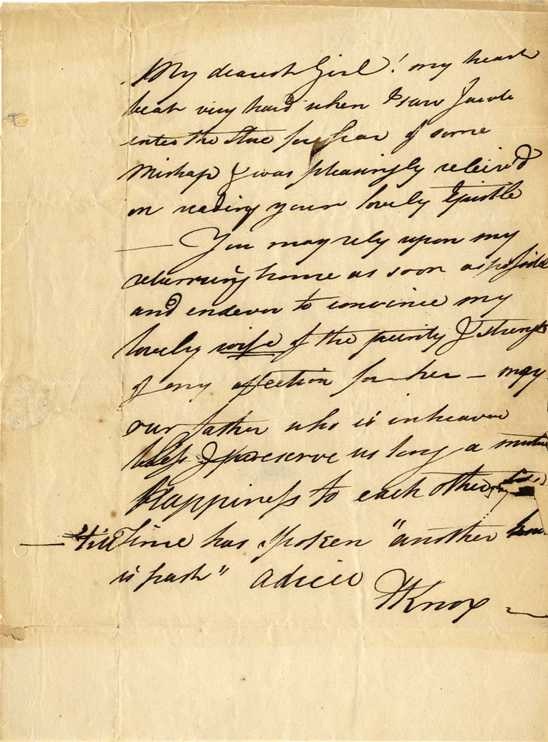 My dearest Girl! my heart
beat very hard when I saw Jacob
enter the Stoe for fear of some
mishap & was pleasingly releiv'd
on reading your lovely Epistle
— You may rely upon my
returning home as soon as possible
and endevor to convince my
lovely wife of the purity & strength
of my affection for her — may
our father who is in heaven
bless & preserve us long a mutual
Happiness to each other
— 'till Time has spoken "another hour
is past" adieu
HKnox —